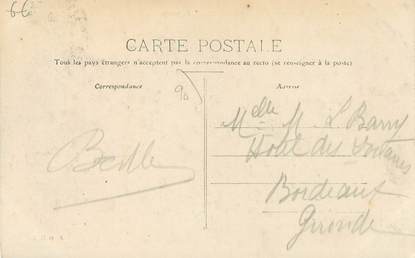 66
CARTE POSTALE
Tous les pays étrangers n'acceptent pas la correspondance au recto (se renseigner à la poste)
Correspondance
Adresse
90
Melle M. L Barry
Hotel des Douanes
Bordeaux
Gironde